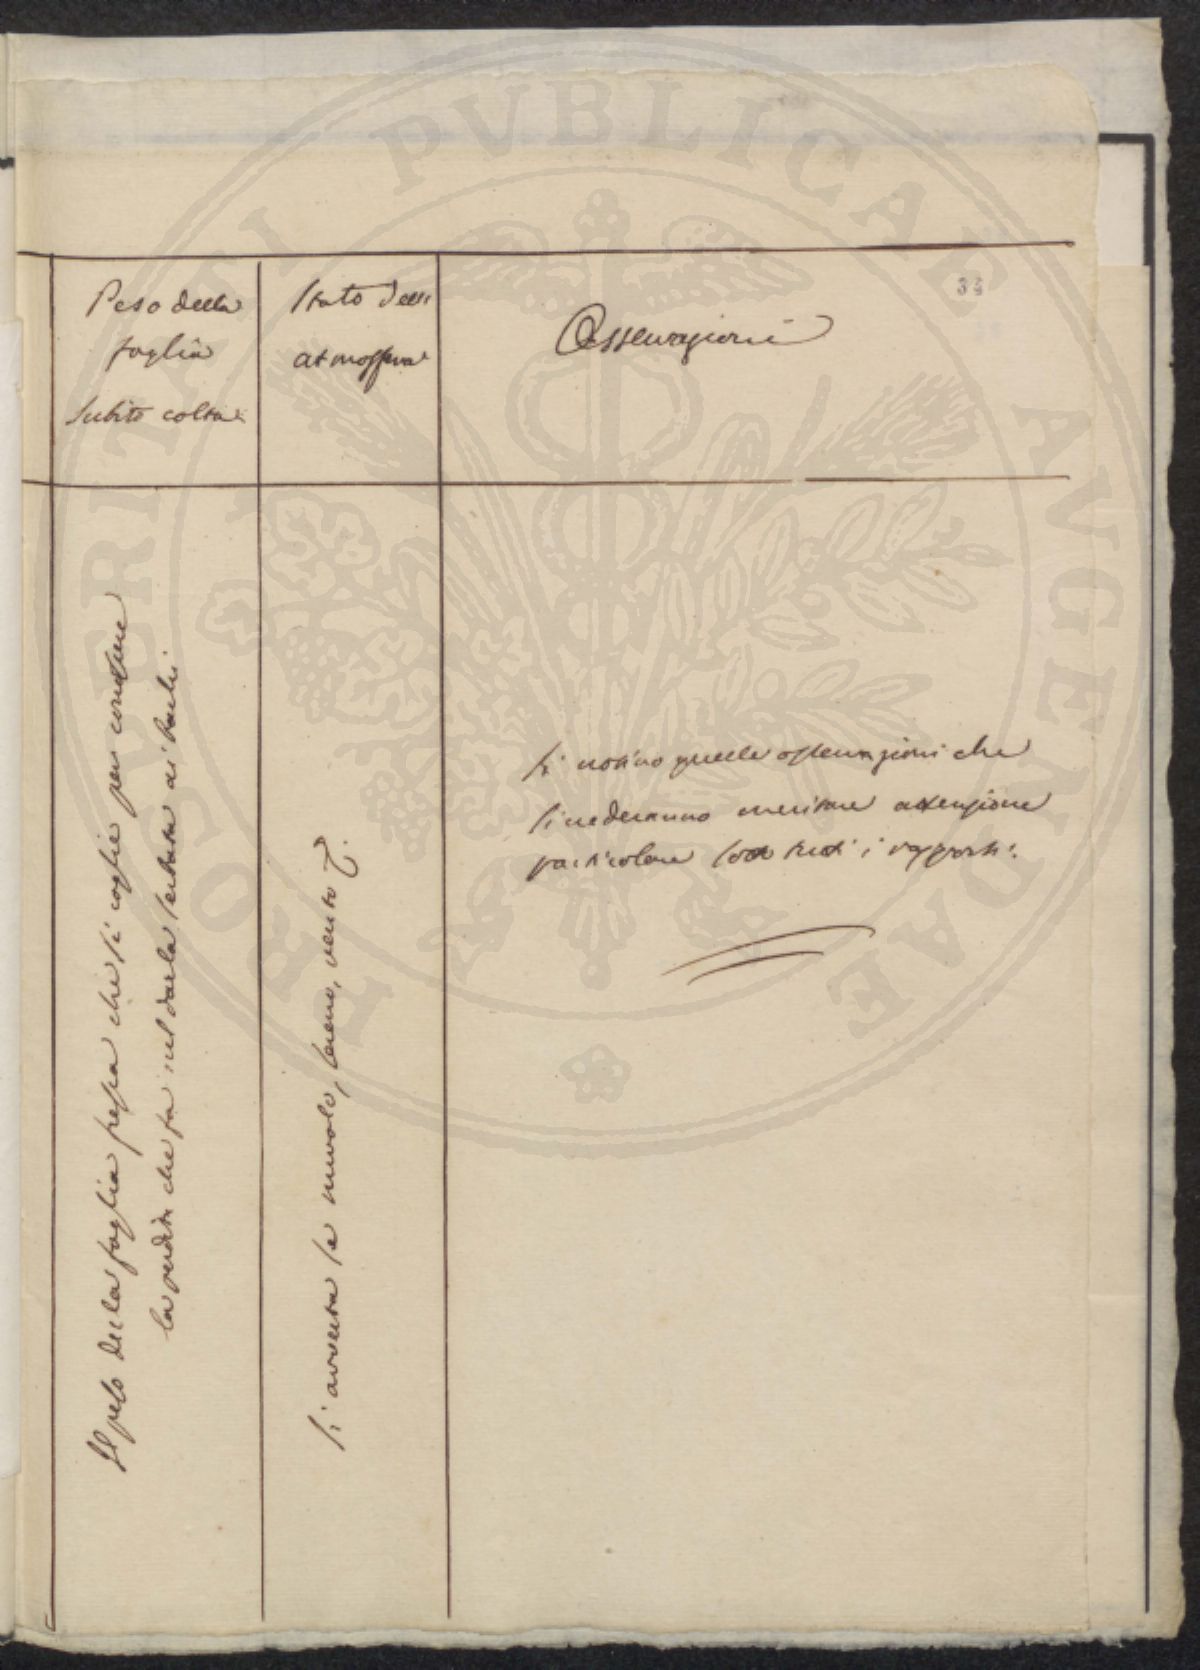 PROSPERITATI PVBLICAE AVGENDAE
34
Peso della
foglia
subito colta
Stato dell'
atmosfera
Osservazioni
Il peso della foglia fresca che si coglie per
la perdita che fa nel darla ai bachi
Si avverta se nuvolo, sereno, vento
Si notino quelle osservazioni che
si crederanno meritare attenzione
particolare sotto tutti i rapporti.